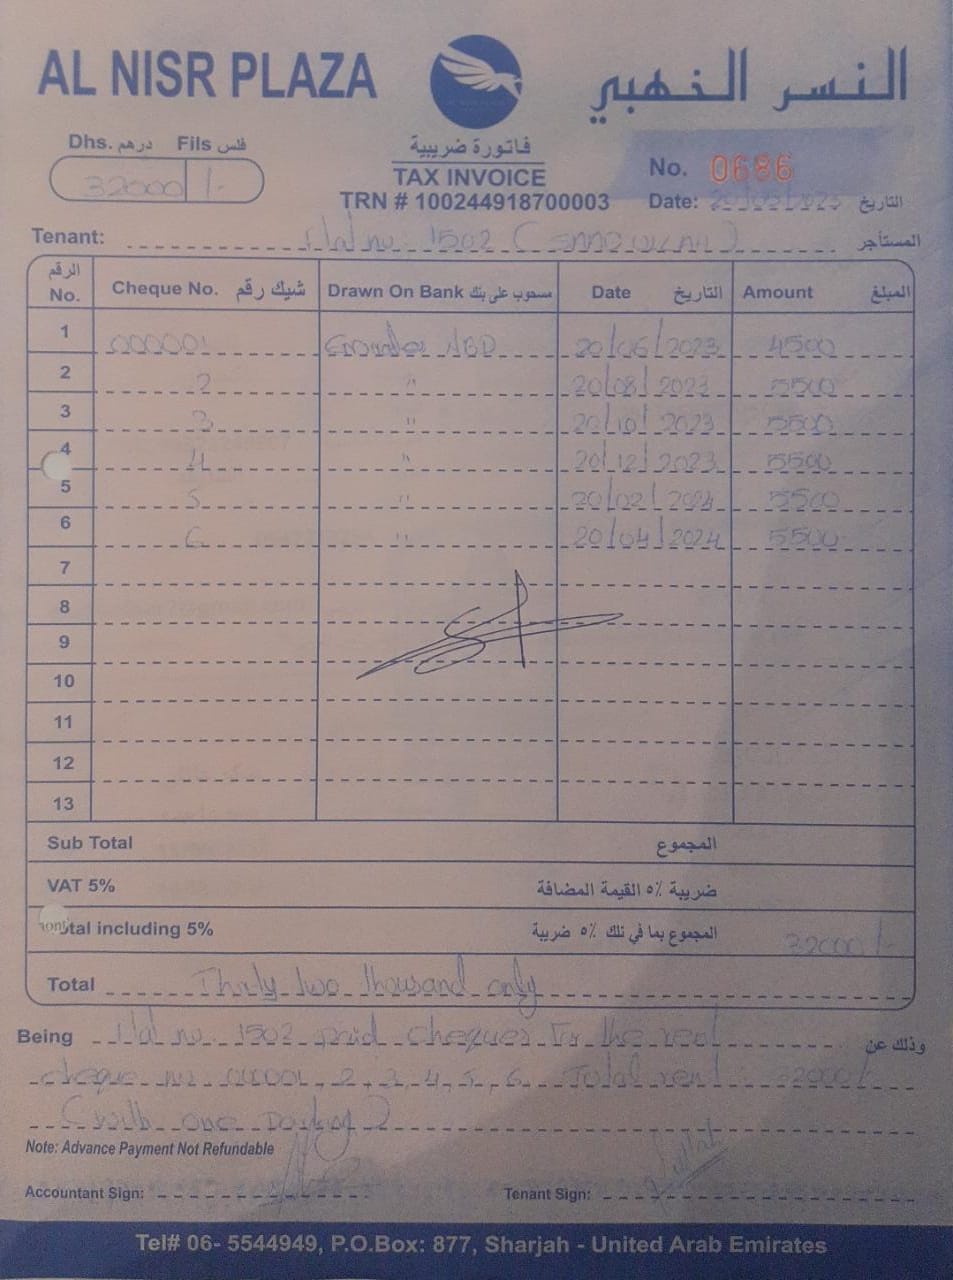 AL NISR PLAZA النسر الذهبي
Dhs. درهم Fils فلس
32000 /-
فاتورة ضريبية
TAX INVOICE
TRN # 100244918700003
No. 0686
Date: 20/05/2023 التاريخ
Tenant: Flat no: 1502 ( ) المستأجر
الرقم No. Cheque No. شيك رقم Drawn On Bank مسحوب على بنك Date التاريخ Amount المبلغ
1 000001 Emirates NBD 20/06/2023 4500
2 2 " 20/08/2023 5500
3 3 " 20/10/2023 5500
4 4 " 20/12/2023 5500
5 5 " 20/02/2024 5500
6 6 " 20/04/2024 5500
7
8
9
10
11
12
13
Sub Total المجموع
VAT 5% ضريبة ٥٪ القيمة المضافة
Total including 5% المجموع بما في تلك ٥٪ ضريبة 32000/-
Total Thirty two thousand only
Being Flat no. 1502 paid cheques for the rent وذلك عن
cheque no 000001, 2, 3, 4, 5, 6. Total rent: 32000/-
(with one parking)
Note: Advance Payment Not Refundable
Accountant Sign: Tenant Sign:
Tel# 06- 5544949, P.O.Box: 877, Sharjah - United Arab Emirates